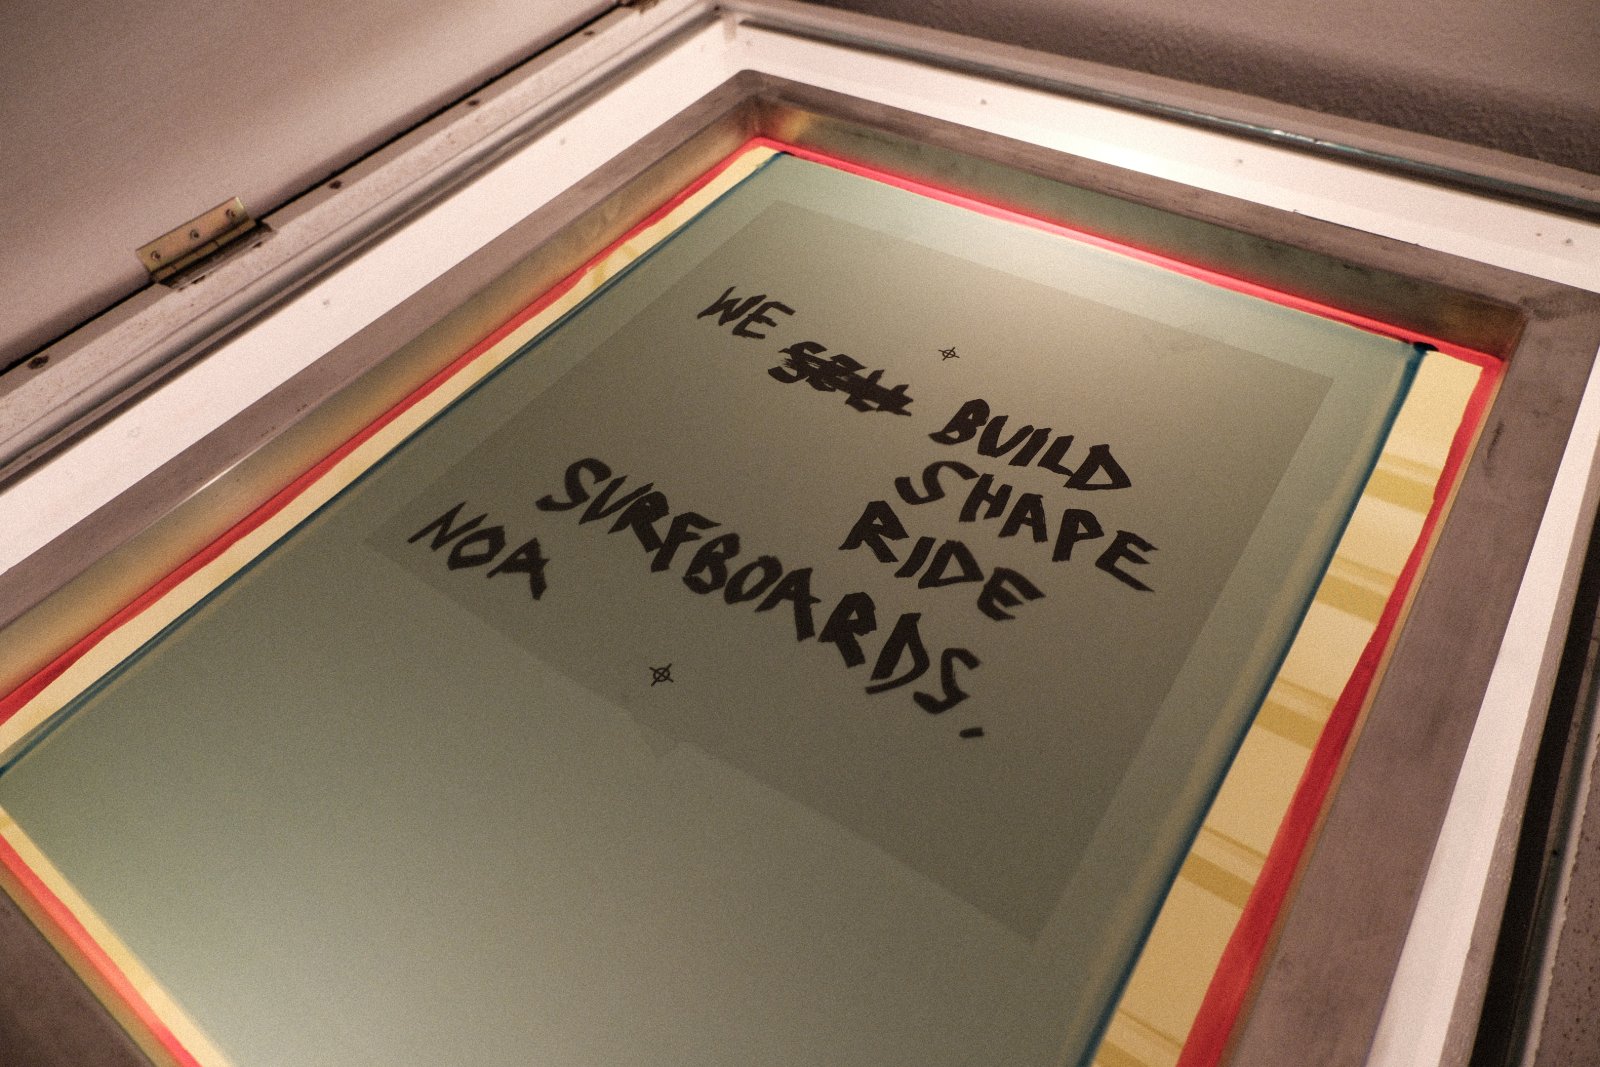 WE BUILD
SHAPE
RIDE
SURFBOARDS.
NOA